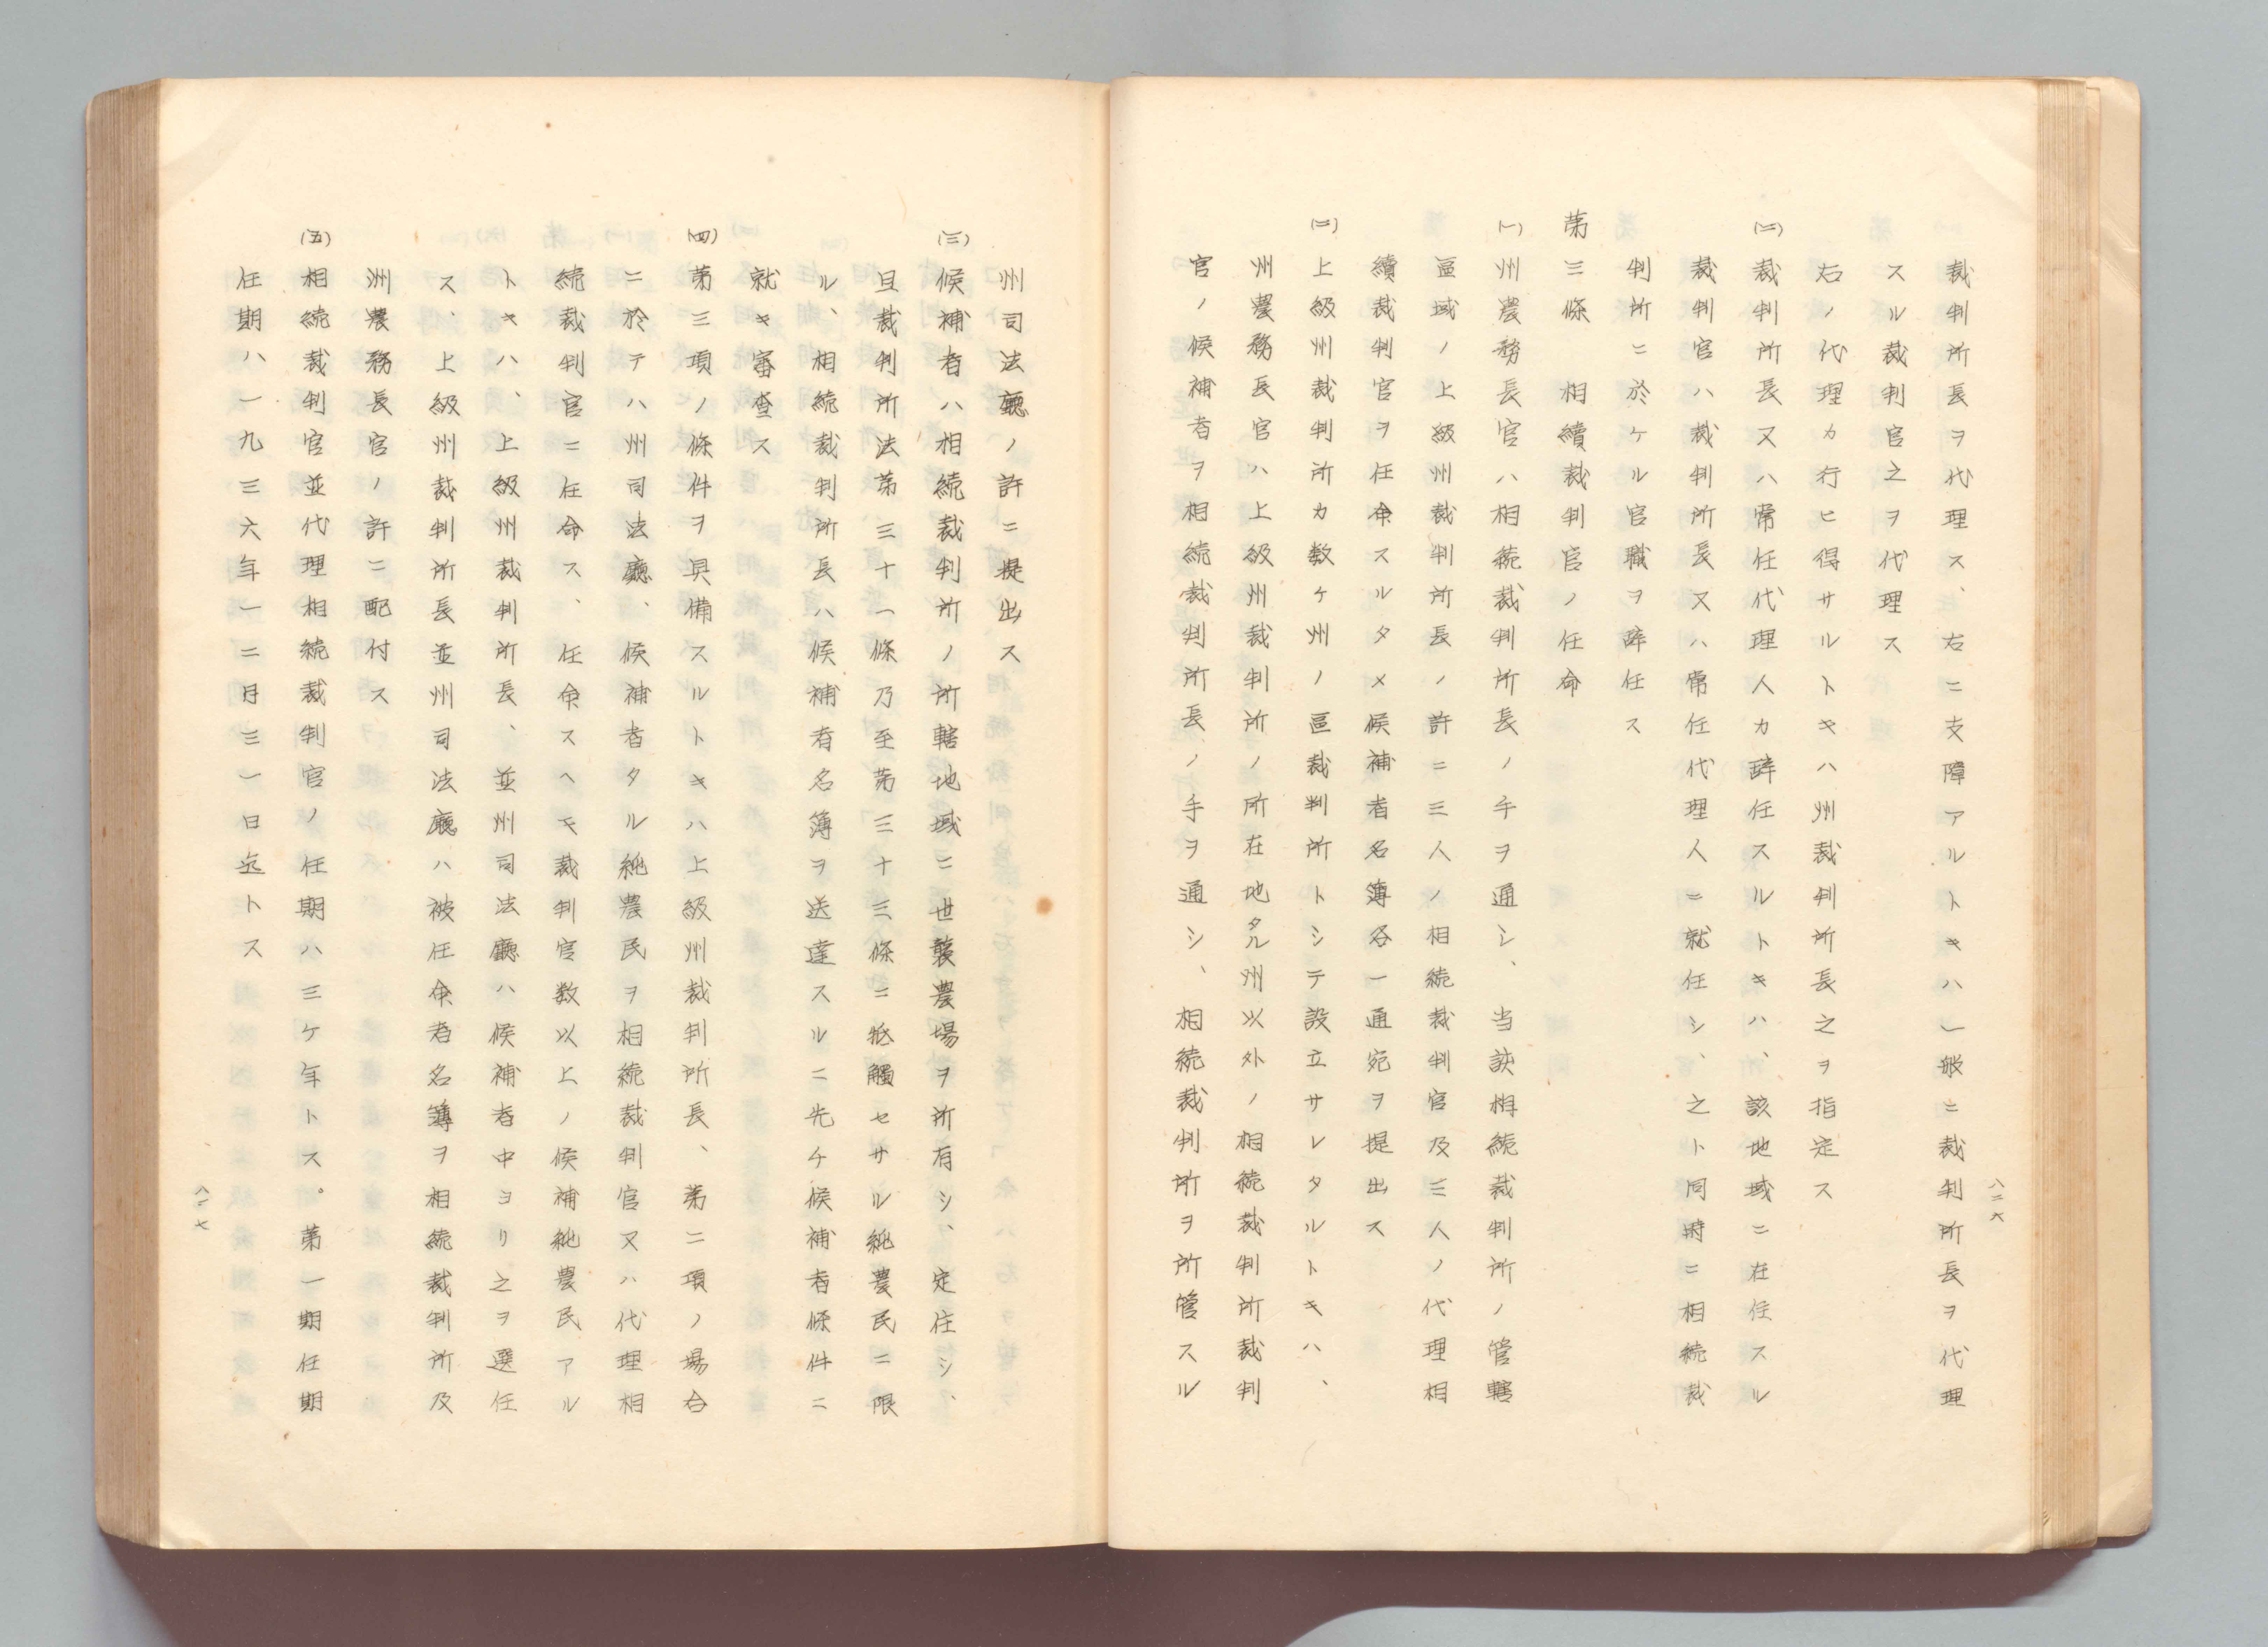 裁判所長ヲ代理ス、右ニ支障アルトキハ一般ニ裁判所長ヲ代理
スル裁判官之ヲ代理ス
右ノ代理カ行ヒ得サルトキハ州裁判所長之ヲ指定ス
(二)裁判所長又ハ常任代理人カ辞任スルトキハ、該地域ニ在任スル
裁判官ハ裁判所長又ハ常任代理人ニ就任シ、之ト同時ニ相続裁
判所ニ於ケル官職ヲ辞任ス
第三條 相續裁判官ノ任命
(一)州農務長官ハ相続裁判所長ノ手ヲ通シ、当該相続裁判所ノ管轄
區域ノ上級州裁判所長ノ許ニ三人ノ相続裁判官及三人ノ代理相
續裁判官ヲ任命スルタメ候補者名簿各一通宛ヲ提出ス
(二)上級州裁判所カ数ヶ州ノ區裁判所トシテ設立サレタルトキハ、
州農務長官ハ上級州裁判所ノ所在地タル州以外ノ相続裁判所裁判
官ノ候補者ヲ相続裁判所長ノ手ヲ通シ、相続裁判所ヲ所管スル
八二六
州司法廳ノ許ニ提出ス
(三)候補者ハ相続裁判所ノ所轄地域ニ世襲農場ヲ所有シ、定住シ、
且裁判所法第三十一條乃至第三十三條ニ抵觸セサル純農民ニ限
ル、相続裁判所長ハ候補者名簿ヲ送達スルニ先チ候補者條件ニ
就キ審査ス
(四)第三項ノ條件ヲ具備スルトキハ上級州裁判所長、第二項ノ場合
ニ於テハ州司法廳、候補者タル純農民ヲ相続裁判官又ハ代理相
続裁判官ニ任命ス、任命スヘキ裁判官数以上ノ候補純農民アル
トキハ、上級州裁判所長、並州司法廳ハ候補者中ヨリ之ヲ選任
ス、上級州裁判所長並州司法廳ハ被任命者名簿ヲ相続裁判所及
洲農務長官ノ許ニ配付ス
(五)相続裁判官並代理相続裁判官ノ任期ハ三ケ年トス。第一期任期
任期ハ一九三六年一二月三一日迄トス
八二七